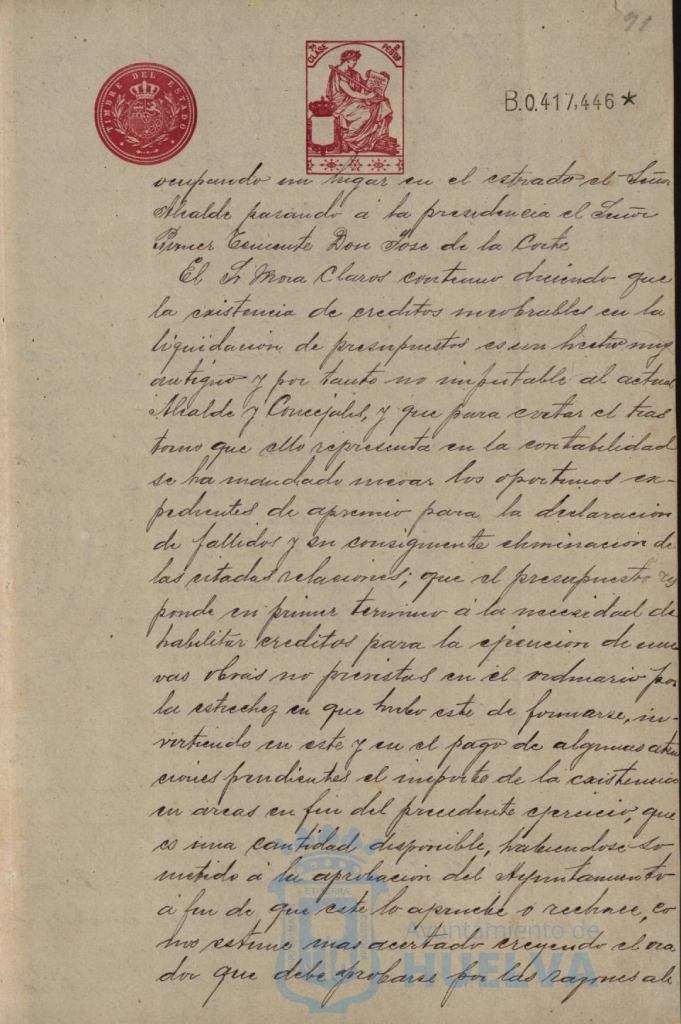 91
TIMBRE DEL ESTADO
7ª CLASE 2 PESETAS
B.0.417,446 *
ocupando un lugar en el estrado el Señor
Alcalde pasando á la presidencia el Señor
Primer Teniente Don Jose de la Corte
El Sr Mora Claros continuo diciendo que
la existencia de creditos incobrables en la
liquidación de presupuestos es un hecho muy
antiguo y por tanto no imputable al actual
Alcalde y Concejales, y que para evitar el tras
torno que ello representa en la contabilidad
se ha mandado incoar los oportunos ex-
pedientes de apremio para la declaración
de fallidos y su consiguiente eliminación de
las citadas relaciones; que el presupuesto res
ponde en primer termino á la necesidad de
habilitar creditos para la ejecucion de nue
vas obras no previstas en el ordinario por
la estrechez en que hubo este de formarse, in-
virtiendo en este y en el pago de algunas aten
ciones pendientes el importe de la existencia
en arcas en fin del precedente ejercicio, que
es una cantidad disponible, habiendose so
metido á la aprobación del Ayuntamiento
á fin de que este lo apruebe ó rechace, co
mo estime mas acertado creyendo el ora
dor que debe probarse por las razones ale
Ayuntamiento de
HUELVA